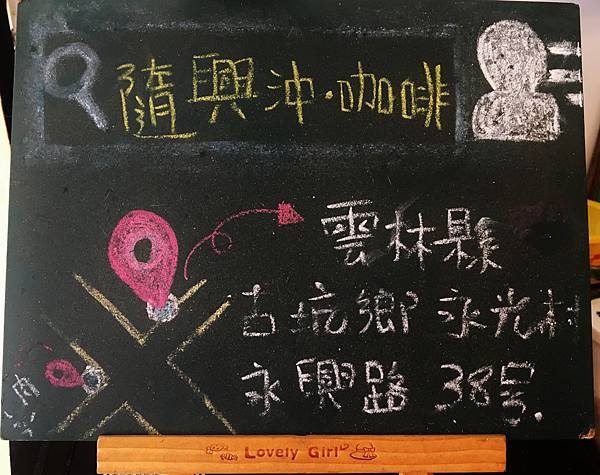 隨興沖·咖啡
雲林縣
古坑鄉 永光村
永興路 38号.
Lovely Girl